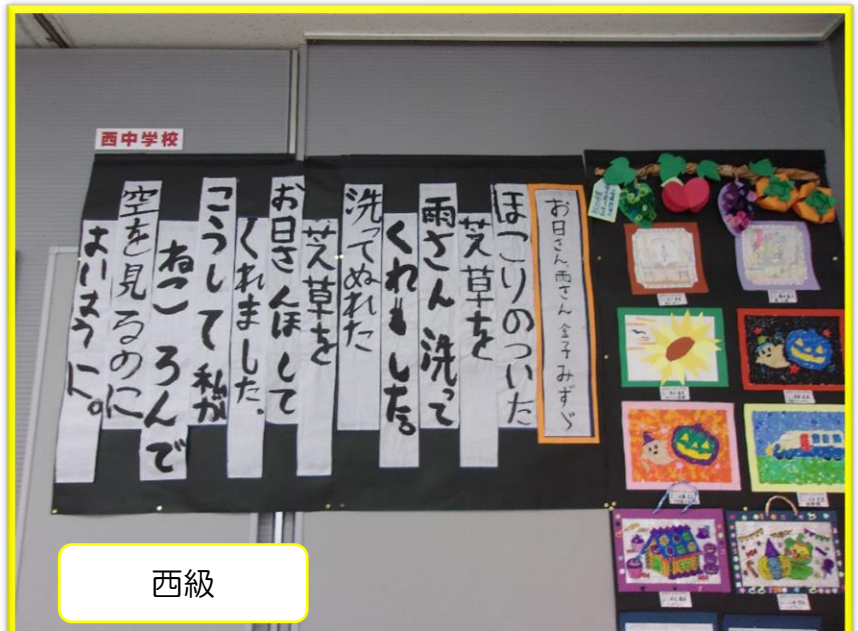 西中学校
お日さん、雨さん 金子みすゞ
ほこりのついた
芝草を
雨さん洗って
くれました。
洗ってぬれた
芝草を
お日さんほして
くれました。
こうして私が
ねころんで
空を見るのに
よいように。
西級